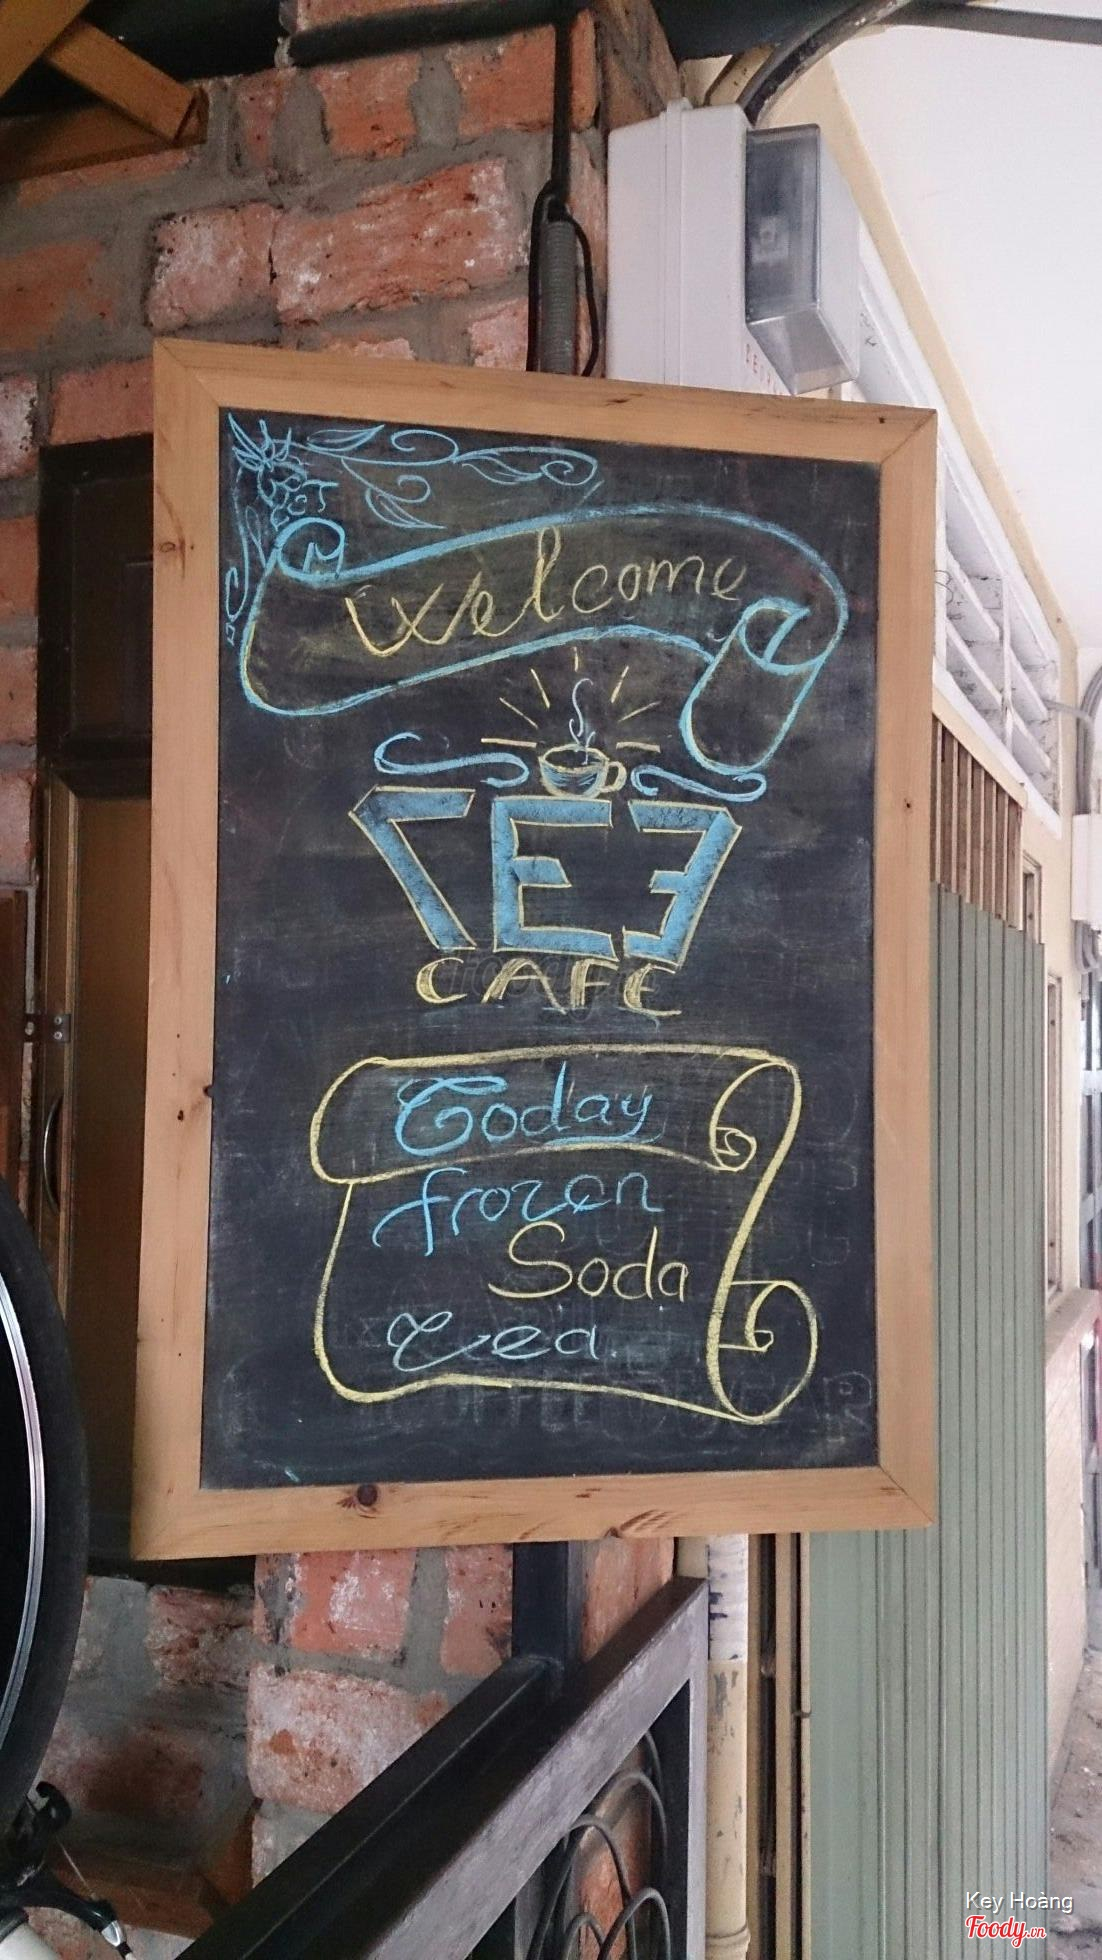 Welcome
7E3
CAFE
Today
frozen
Soda
Tea
COFFEE
Key Hoàng
Foody.vn